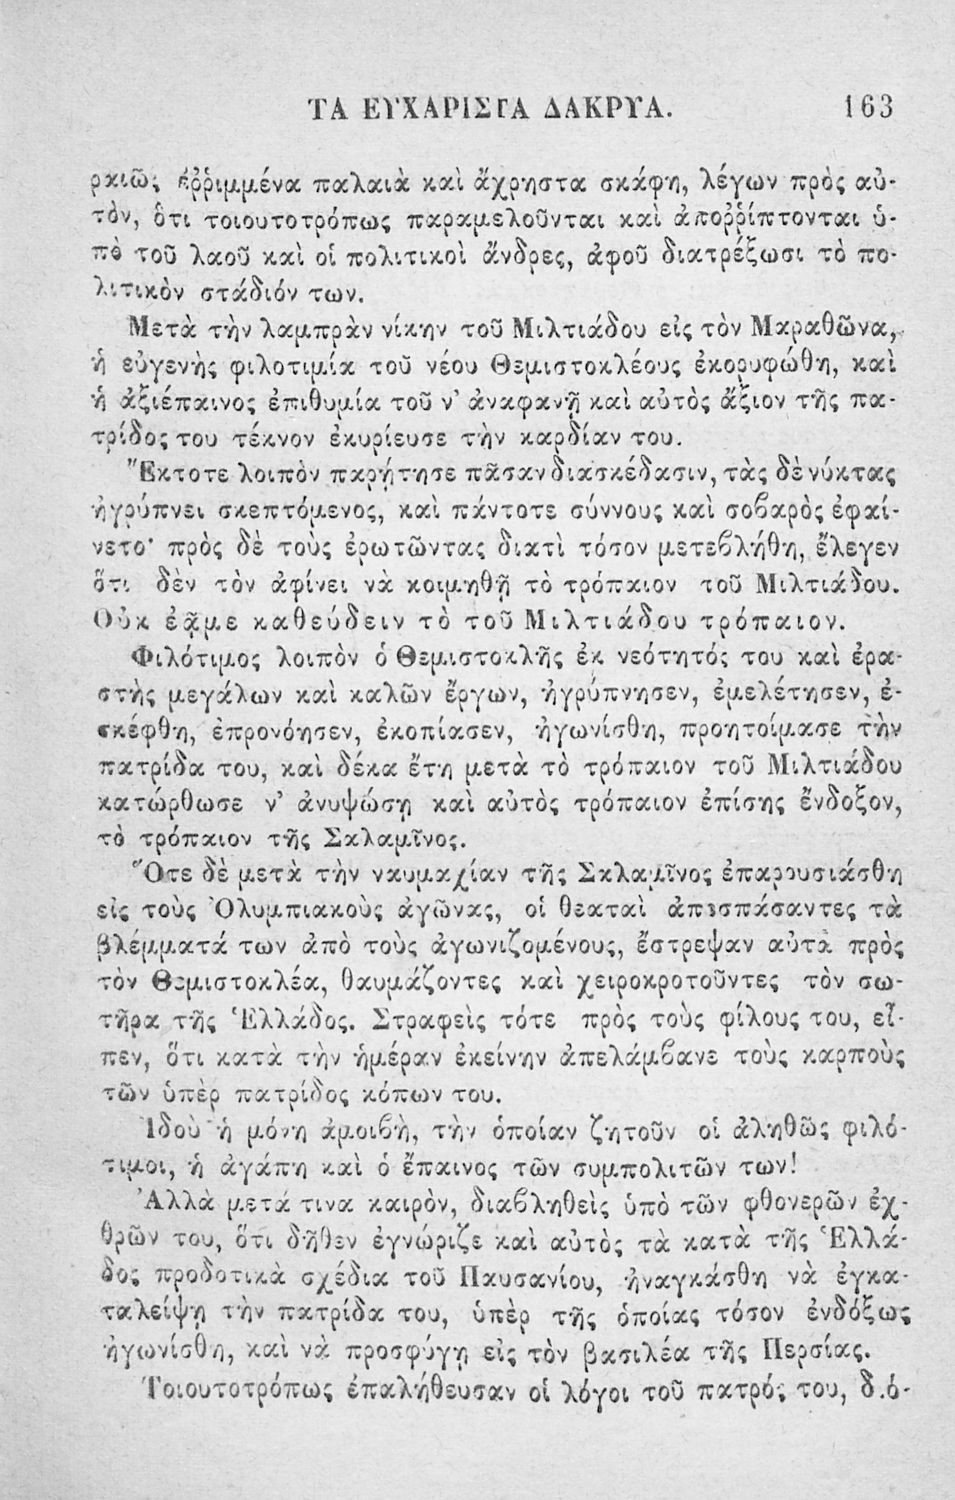 ΤΑ ΕΥΧΑΡΙΣΤΑ ΔΑΚΡΥΑ. 163
ρκιῶς ἐῤῥιμμένα παλαιὰ καὶ ἄχρηστα σκάφη, λέγων πρὸς αὐ-
τὸν, ὅτι τοιουτοτρόπως παραμελοῦνται καὶ ἀποῤῥίπτονται ὑ-
πὸ τοῦ λαοῦ καὶ οἱ πολιτικοὶ ἄνδρες, ἀφοῦ διατρέξωσι τὸ πο-
λιτικὸν στάδιόν των.
Μετὰ τὴν λαμπρὰν νίκην τοῦ Μιλτιάδου εἰς τὸν Μαραθῶνα,
ἡ εὐγενὴς φιλοτιμία τοῦ νέου Θεμιστοκλέους ἐκορυφώθη, καὶ
ἡ ἀξιέπαινος ἐπιθυμία τοῦ ν' ἀναφανῇ καὶ αὐτὸς ἄξιον τῆς πα-
τρίδος του τέκνον ἐκυρίευσε τὴν καρδίαν του.
Ἔκτοτε λοιπὸν παρῄτησε πᾶσαν διασκέδασιν, τὰς δὲ νύκτας
ἠγρύπνει σκεπτόμενος, καὶ πάντοτε σύννους καὶ σοβαρὸς ἐφαί-
νετο· πρὸς δὲ τοὺς ἐρωτῶντας διατὶ τόσον μετεβλήθη, ἔλεγεν
ὅτι δὲν τὸν ἀφίνει νὰ κοιμηθῇ τὸ τρόπαιον τοῦ Μιλτιάδου.
Οὐκ ἐᾷ με καθεύδειν τὸ τοῦ Μιλτιάδου τρόπαιον.
Φιλότιμος λοιπὸν ὁ Θεμιστοκλῆς ἐκ νεότητός του καὶ ἐρα-
στὴς μεγάλων καὶ καλῶν ἔργων, ἠγρύπνησεν, ἐμελέτησεν, ἐ-
σκέφθη, ἐπρονόησεν, ἐκοπίασεν, ἠγωνίσθη, προητοίμασε τὴν
πατρίδα του, καὶ δέκα ἔτη μετὰ τὸ τρόπαιον τοῦ Μιλτιάδου
κατώρθωσε ν' ἀνυψώσῃ καὶ αὐτὸς τρόπαιον ἐπίσης ἔνδοξον,
τὸ τρόπαιον τῆς Σαλαμῖνος.
Ὅτε δὲ μετὰ τὴν ναυμαχίαν τῆς Σαλαμῖνος ἐπαρουσιάσθη
εἰς τοὺς Ὀλυμπιακοὺς ἀγῶνας, οἱ θεαταὶ ἀποσπάσαντες τὰ
βλέμματά των ἀπὸ τοὺς ἀγωνιζομένους, ἔστρεψαν αὐτὰ πρὸς
τὸν Θεμιστοκλέα, θαυμάζοντες καὶ χειροκροτοῦντες τὸν σω-
τῆρα τῆς Ἑλλάδος. Στραφεὶς τότε πρὸς τοὺς φίλους του, εἶ-
πεν, ὅτι κατὰ τὴν ἡμέραν ἐκείνην ἀπελάμβανε τοὺς καρποὺς
τῶν ὑπὲρ πατρίδος κόπων του.
Ἰδοὺ ἡ μόνη ἀμοιβὴ, τὴν ὁποίαν ζητοῦν οἱ ἀληθῶς φιλό-
τιμοι, ἡ ἀγάπη καὶ ὁ ἔπαινος τῶν συμπολιτῶν των!
Ἀλλὰ μετά τινα καιρὸν, διαβληθεὶς ὑπὸ τῶν φθονερῶν ἐχ-
θρῶν του, ὅτι δῆθεν ἐγνώριζε καὶ αὐτὸς τὰ κατὰ τῆς Ἑλλά-
δος προδοτικὰ σχέδια τοῦ Παυσανίου, ἠναγκάσθη νὰ ἐγκα-
ταλείψῃ τὴν πατρίδα του, ὑπὲρ τῆς ὁποίας τόσον ἐνδόξως
ἠγωνίσθη, καὶ νὰ προσφύγῃ εἰς τὸν βασιλέα τῆς Περσίας.
Τοιουτοτρόπως ἐπαλήθευσαν οἱ λόγοι τοῦ πατρός του, διό-